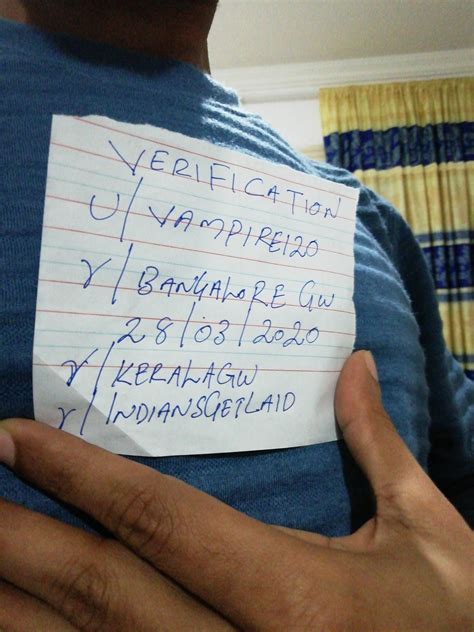 VERIFICATION
U/VAMPIRE120
r/BANGALORE GW
28/03/2020
r/KERALAGW
r/INDIANSGETLAID